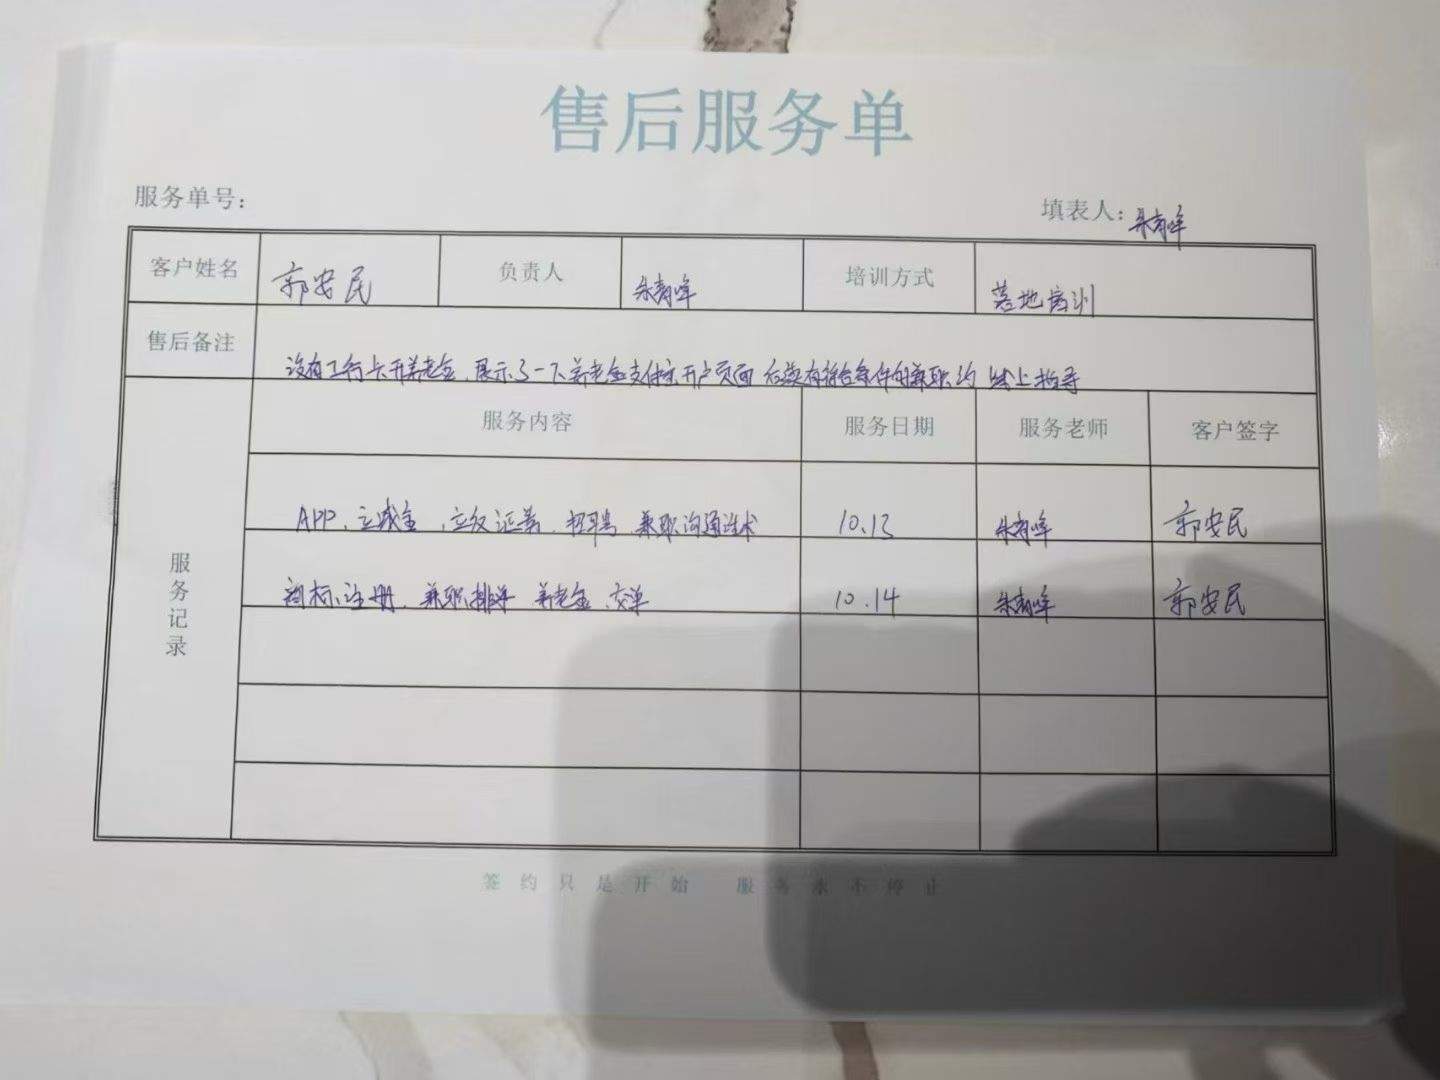 售后服务单
服务单号:
填表人: 朱青峰
客户姓名 郭安民 负责人 朱青峰 培训方式 落地培训
售后备注 没有工行卡开养老金、展示了一下养老金支付宝开户页面 后续有符合条件的兼职约 线上指导
服务记录 服务内容 服务日期 服务老师 客户签字
APP、立减金、证券、招聘、兼职沟通话术 10.13 朱青峰 郭安民
商标注册、兼职排单 养老金、交单 10.14 朱青峰 郭安民
签约只是开始 服务永不停止